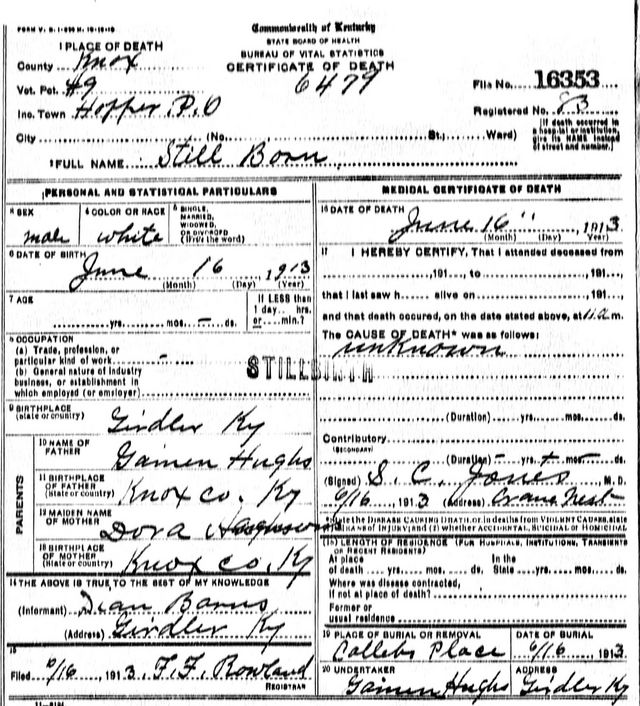 FORM V. S. 1-
Commonwealth of Kentucky
STATE BOARD OF HEALTH
BUREAU OF VITAL STATISTICS
CERTIFICATE OF DEATH
6479
1 PLACE OF DEATH
County Knox
Vot. Pct. #9
Inc. Town Hopper P.O
City (No. St. Ward)
File No. 16353
Registered No. 83
(If death occurred in a hospital or institution, give its NAME instead of street and number.)
2 FULL NAME Still Born
PERSONAL AND STATISTICAL PARTICULARS
3 SEX male
4 COLOR OR RACE white
5 SINGLE, MARRIED, WIDOWED, OR DIVORCED (Write the word)
6 DATE OF BIRTH June 16, 1913
(Month) (Day) (Year)
7 AGE
yrs. mos. - ds.
If LESS than 1 day.. hrs. or.... min.?
8 OCCUPATION
(a) Trade, profession, or particular kind of work -
(b) General nature of industry business, or establishment in which employed (or employer)
STILLBIRTH
9 BIRTHPLACE (State or country) Girdler Ky
PARENTS
10 NAME OF FATHER Gainen Hughs
11 BIRTHPLACE OF FATHER (State or country) Knox co. Ky
12 MAIDEN NAME OF MOTHER Dora
13 BIRTHPLACE OF MOTHER (State or country) Knox co. Ky
14 THE ABOVE IS TRUE TO THE BEST OF MY KNOWLEDGE
(Informant) Dean Barns
(Address) Girdler Ky
15
Filed 6/16 1913 F. F. Rowland
REGISTRAR
MEDICAL CERTIFICATE OF DEATH
16 DATE OF DEATH June 16", 1913
(Month) (Day) Year)
17 I HEREBY CERTIFY, That I attended deceased from
,191 , to ,191 ,
that I last saw h alive on ,191 ,
and that death occured, on the date stated above, at 11 a m.
The CAUSE OF DEATH* was as follows:
unknown
(Duration) yrs. mos. ds.
Contributory
(SECONDARY)
(Duration) - yrs. mos. - ds.
(Signed) S. C. Jones M. D.
6/16 , 1913 (Address) Crane Nest
*State the DISEASE CAUSING DEATH, or, in deaths from VIOLENT CAUSES, state
(1) MEANS OF INJURY; and (2) whether ACCIDENTAL, SUICIDAL OR HOMICIDAL
18 LENGTH OF RESIDENCE (FOR HOSPITALS, INSTITUTIONS, TRANSIENTS OR RECENT RESIDENTS)
At place of death yrs. mos. ds. In the State yrs. mos. ds.
Where was disease contracted, if not at place of death?
Former or usual residence
19 PLACE OF BURIAL OR REMOVAL
Collebs Place
DATE OF BURIAL
6/16, 1913
20 UNDERTAKER
Gainen Hughs
ADDRESS
Girdler Ky